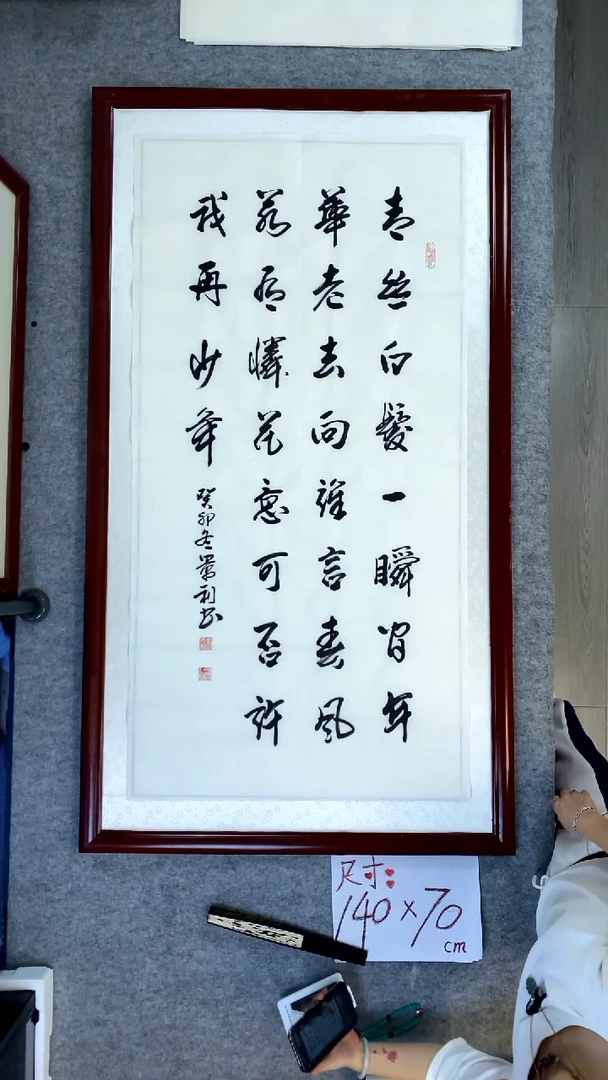 青丝白髮一瞬间年
華老去向谁言春风
若有憐花意可否许
我再少年
癸卯冬景利书
尺寸:
140×70
cm